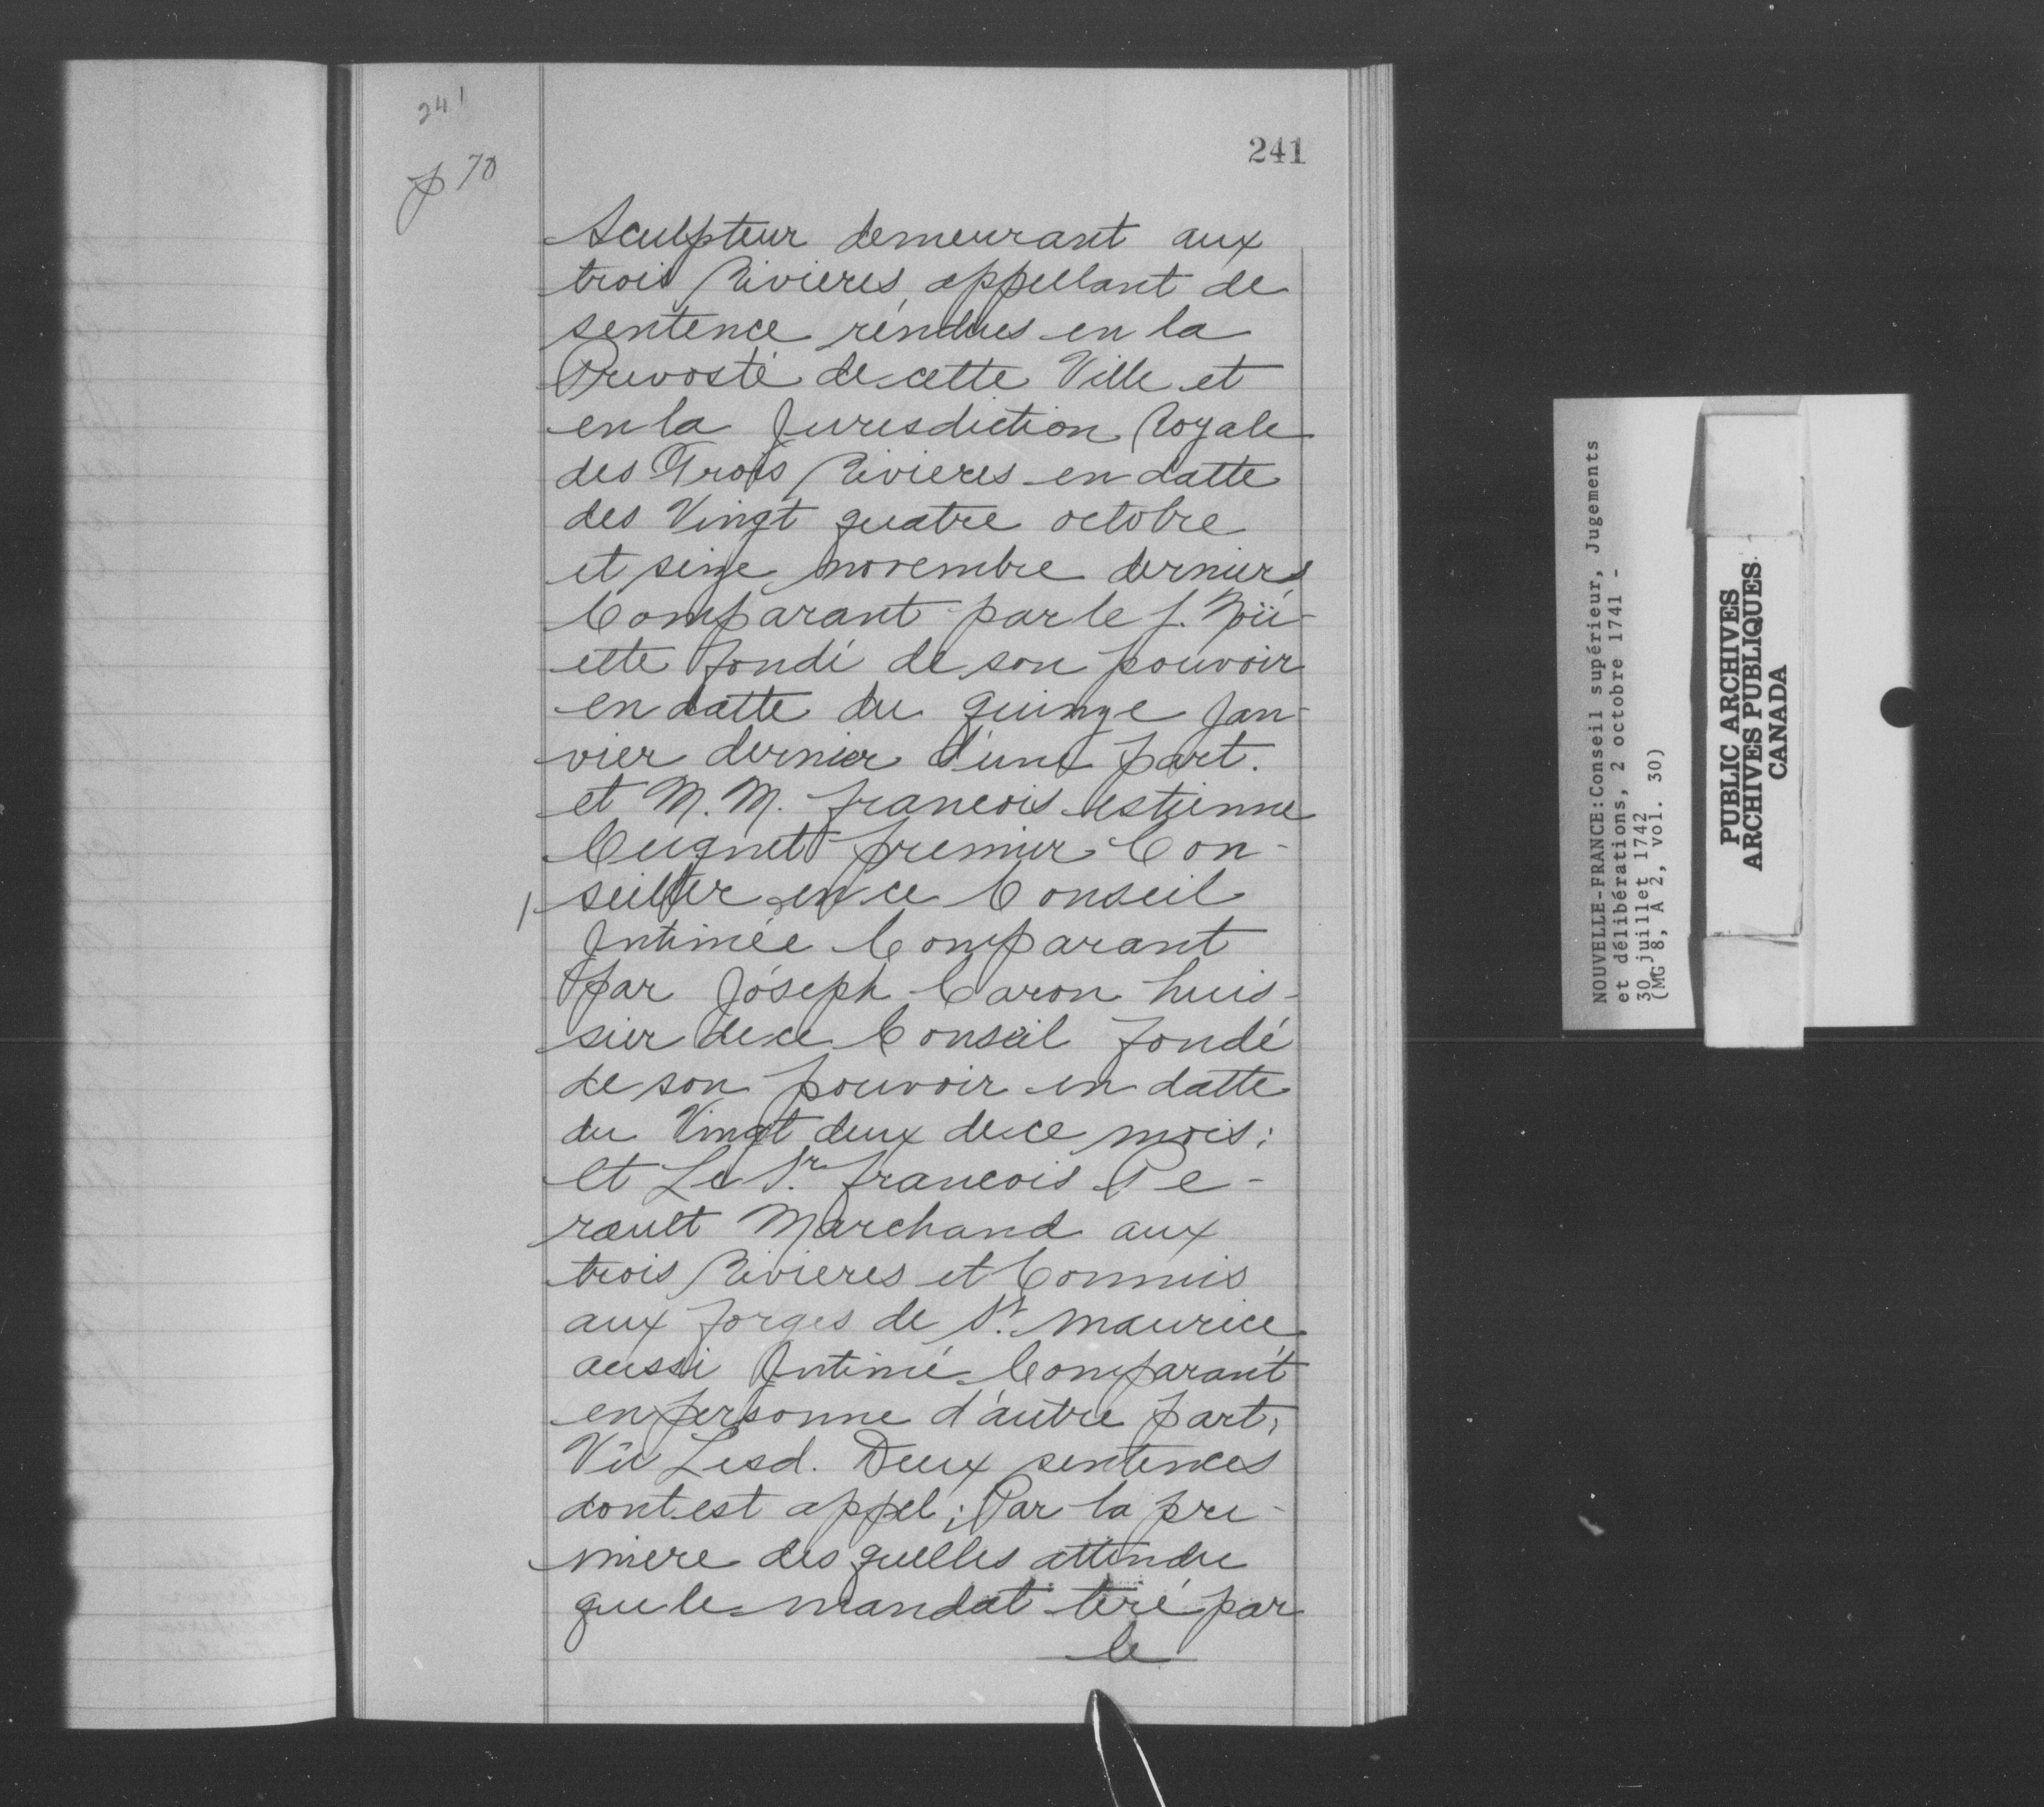 241
p 70
241
Sculpteur demeurant aux
trois Rivieres, appellant de
sentence réndues en la
Prevosté de cette Ville et
en la Jurisdiction Royale
des Trois Rivieres en datte
des Vingt quatre octobre
et seize novembre derniers
Comparant par le s. Noü-
ette fondé de son pouvoir
en datte du quinze Jan-
vier dernier d'une part.
et M. M. francois estienne
Cugnet premier Con-
seiller en ce Conseil
Intimée Comparant
par Joseph Caron huis-
sier de ce Conseil fondé
de son pouvoir en datte
du Vingt deux de ce mois;
et Le Sr. francois Pe-
rault Marchand aux
trois Rivieres et Commis
aux forges de St. Maurice
aussi Intimé Comparant
en personne d'autre part,
Vû Lesd. Deux sentences
dont est appel; Par la pre-
miere des quelles attendu
que le mandat tiré par
le
NOUVELLE-FRANCE: Conseil supérieur, Jugements
et délibérations, 2 octobre 1741 -
30 juillet 1742
(MG 8, A 2, vol. 30)
PUBLIC ARCHIVES
ARCHIVES PUBLIQUES
CANADA